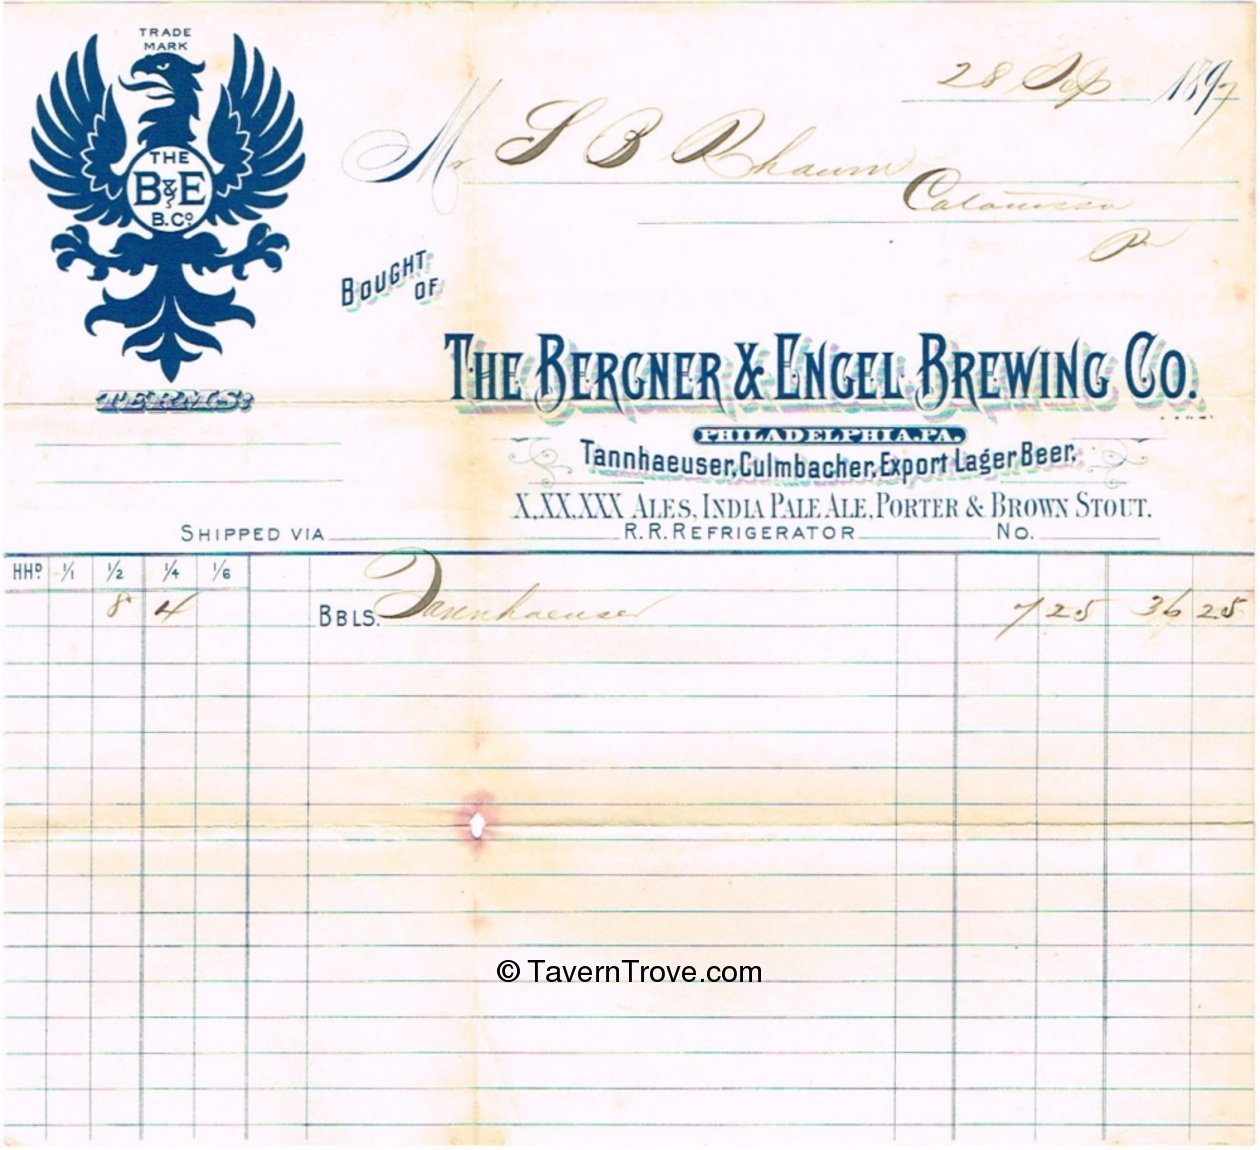 TRADE
MARK
THE
B & E
B. Co.
28 Sep 1897
Mr S B Rhawn
Catawissa
Pa
BOUGHT
OF
THE BERGNER & ENGEL BREWING CO.
TERMS:
PHILADELPHIA, PA.
Tannhaeuser, Culmbacher, Export Lager Beer,
X, XX, XXX ALES, INDIA PALE ALE, PORTER & BROWN STOUT.
SHIPPED VIA R.R. REFRIGERATOR No.
HHD 1/1 1/2 1/4 1/6
8 4 BBLS. Tannhaeuser 7 25 36 25
© TavernTrove.com